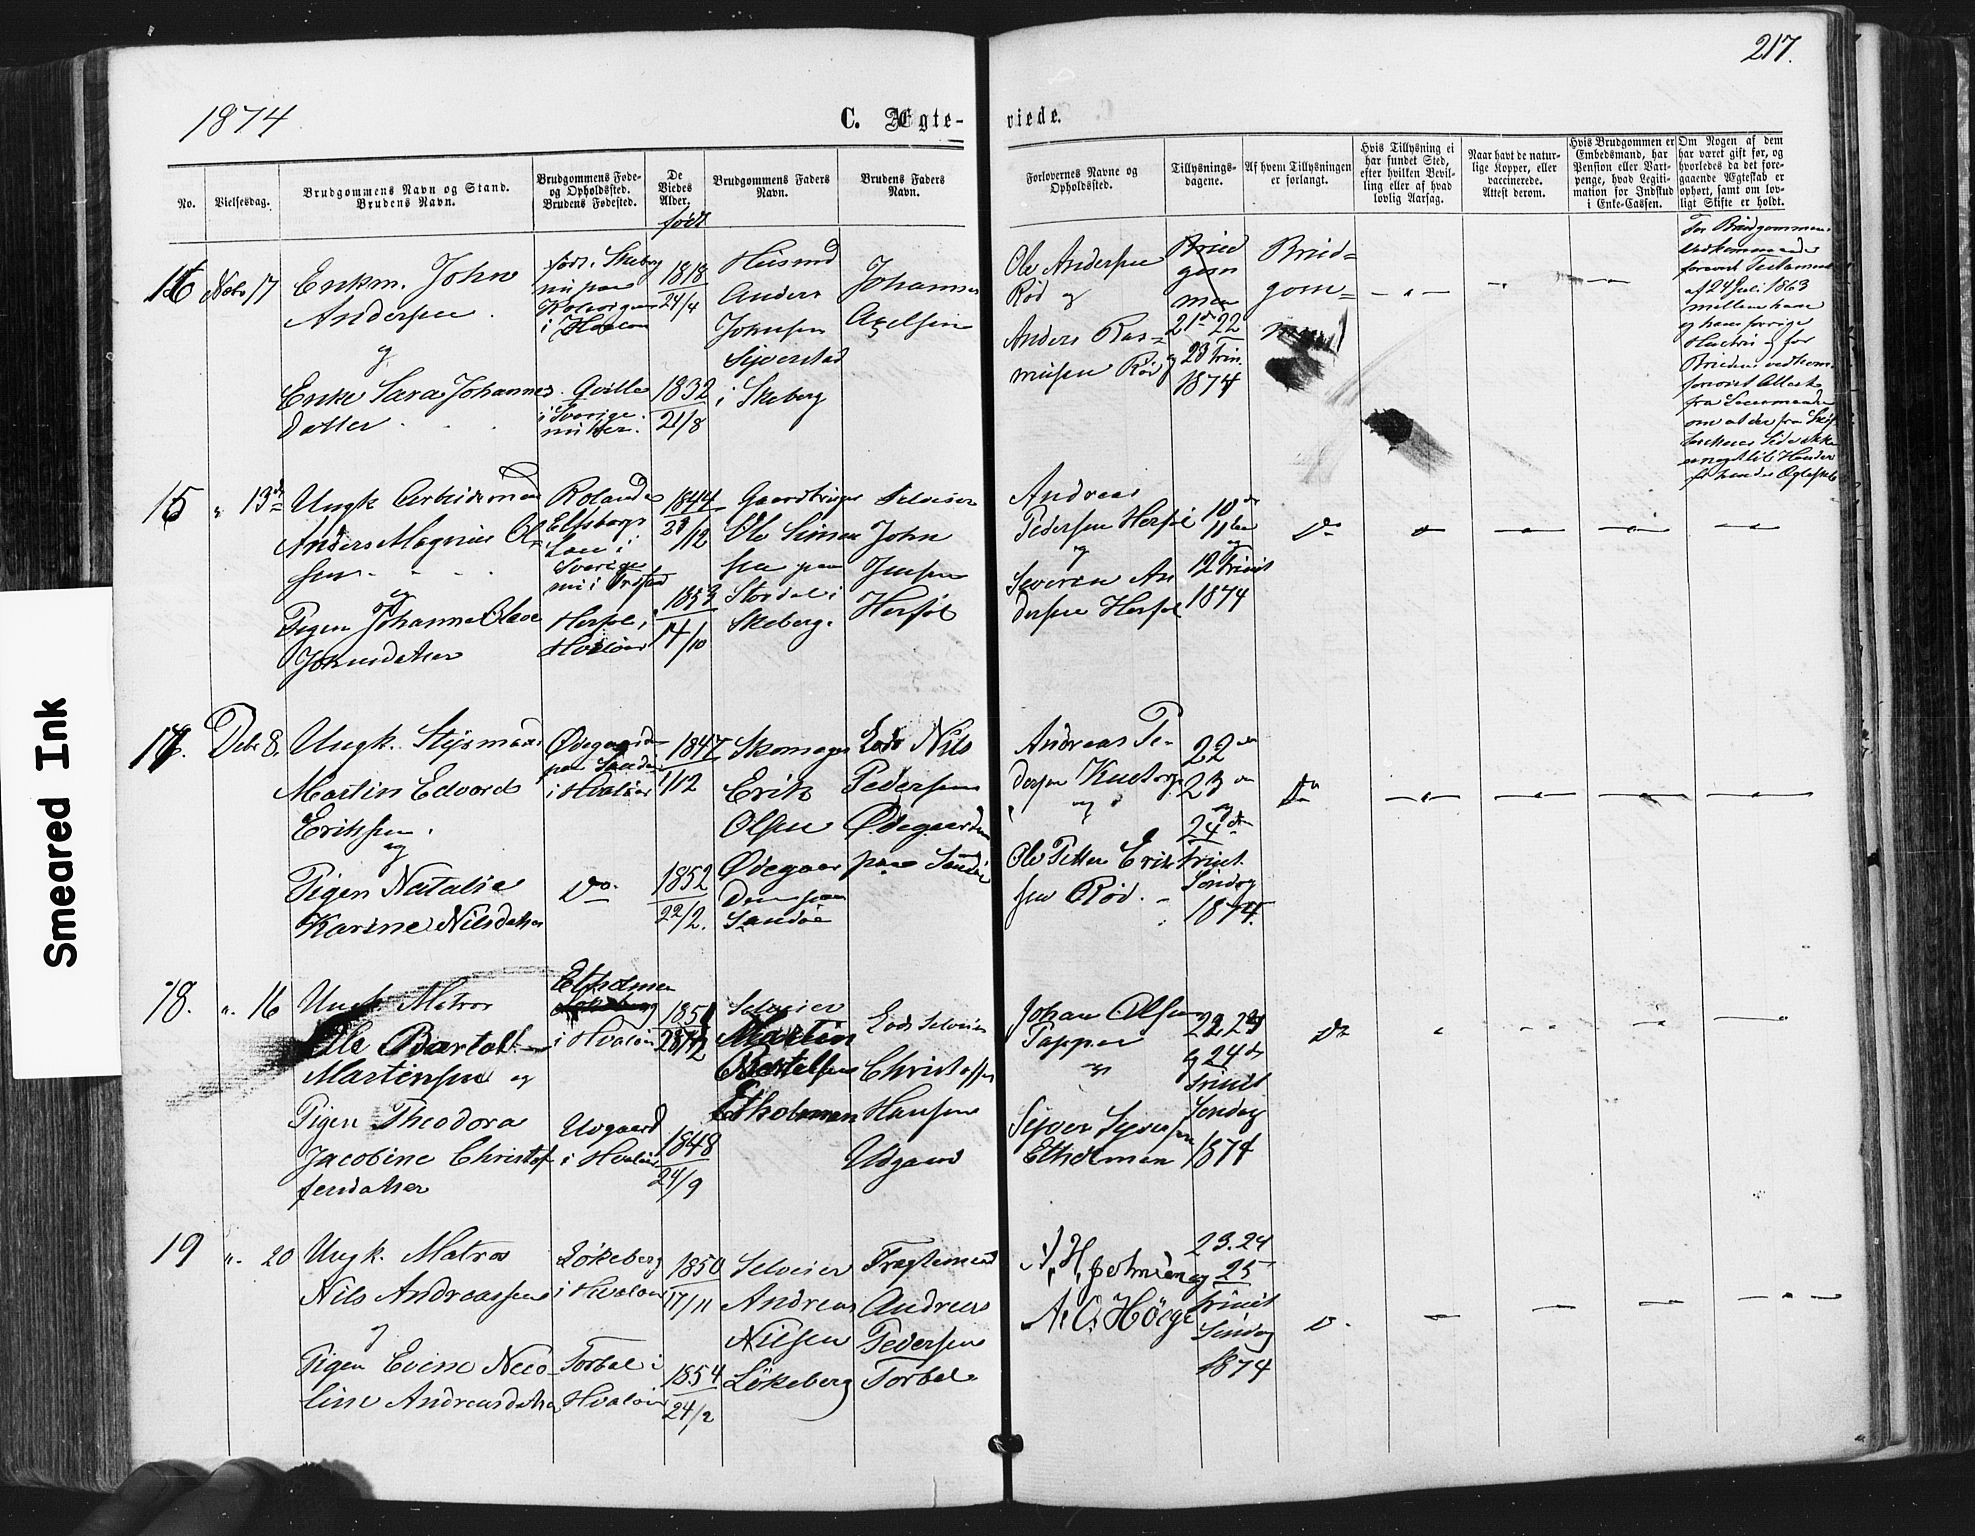 217.
1874
C. Ægte-
viede.
No.
Vielsesdag.
Brudgommens Navn og Stand.
Brudens Navn.
Brudgommens Føde-
og Opholdssted.
Brudens Fødested.
De
Viedes
Alder.
født
Brudgommens Faders
Navn.
Brudens Faders
Navn.
Forlovernes Navne og
Opholdssted.
Tillysnings-
dagene.
Af hvem Tillysningen
er forlangt.
Hvis Tillysning ei
har fundet Sted,
efter hvilken Bevil-
ling eller af hvad
lovlig Aarsag.
Naar havt de natur-
lige Kopper, eller
vaccinerede.
Attest derom.
Hvis Brudgommen er
Embedsmand, har
Pension eller Vart-
penge, hvad Legiti-
mation for Indskud
i Enke-Cassen.
Om Nogen af dem
har været gift før, og
hvorledes da det fore-
gaaende Ægteskab er
ophørt, samt om lov-
ligt Skifte er holdt.
16
Novbr 17
Enkm. John
Andersen
og
Enke Sara Johannes
datter
født i Skeberg
nu paa
i Hvaløer
Qville
i Sverige
1818
24/4
1832
21/8
Husmd
Anders
Johnsen
Sijverstad
i Skeberg
Johannes
Axelsen
Ole Andersen
Rød og
Anders Ras=
musen Rød
Brud
gom
men
21de 22
og 23 Trin
1874
Brud=
gom=
For Brudgommens
Vedkommende
foreviist Testament
af 24 Juli 1863
mellem ham
og hans forrige
Hustru og for
Brudens vedkom.
foreviist Attest
15
" 13de
Ungk Arbeidsmand
Anders Magnus Ol
sen
og
Pigen Johanne Olave
Johnsdatter
Elfsborgs
Læn i
Sverige
Herføl,
Hvaløer
1844
/12
1853
14/10
Gaardbruger
Ole Simen
sen paa
Stordal i
Skeberg.
Selveier
John
Jensen
Herføl
Andreas
Pedersen Herføl
og
Severin An
dersen Herføl
10de
11te
og
12 Trinit
1874
Do
17.
Debr 8.
Ungk. Styrmand
Martin Edvard
Eriksen.
og
Pigen Natalia
Karine Nilsdatter
Ødegaarden
paa Sandø
i Hvaløer
Do
1847
1/12
1852
22/2.
Skomager
Erik
Olsen
Ødegaar
den paa
Sandøe
Lods Nils
Pedersen
Ødegaarden
paa Sandø
Andreas Pe-
dersen
og
Ole Petter Erik
sen Rød.
22de
23de
og
24de
Trinit.
Søndag
1874.
Do
18.
" 16
Ungk. Matros
Ole Bartol
Martinsen og
Pigen Theodora
Jacobine Christof
fersdatter
Etholmen
i Hvaløer
Urgaard
i Hvaløer
1851
1848
24/9
Selveier
Martin
Bertelsen
Etholmen
Lods Selveier
Christoffer
Hansen
Urgaard
Johan Olsen
Papper
og
Syver Syversen
Etholmen
22. 23
og 24de
Trinit
Søndag
1874
Do
19
" 20
Ungk. Matros
Nils Andreassen
og
Pigen Evine Nico-
line Andreasdatter
Løkeberg
i Hvaløer
Torbel i
Hvaløer
1850
17/11
1854
24/2
Selveier
Andreas
Nilsen
Løkeberg
Fragtemand
Andreas
Pedersen
Torbel
A. O. Høege
23. 24
og 25
Trinit
Søndag
1874
Do
Smeared Ink